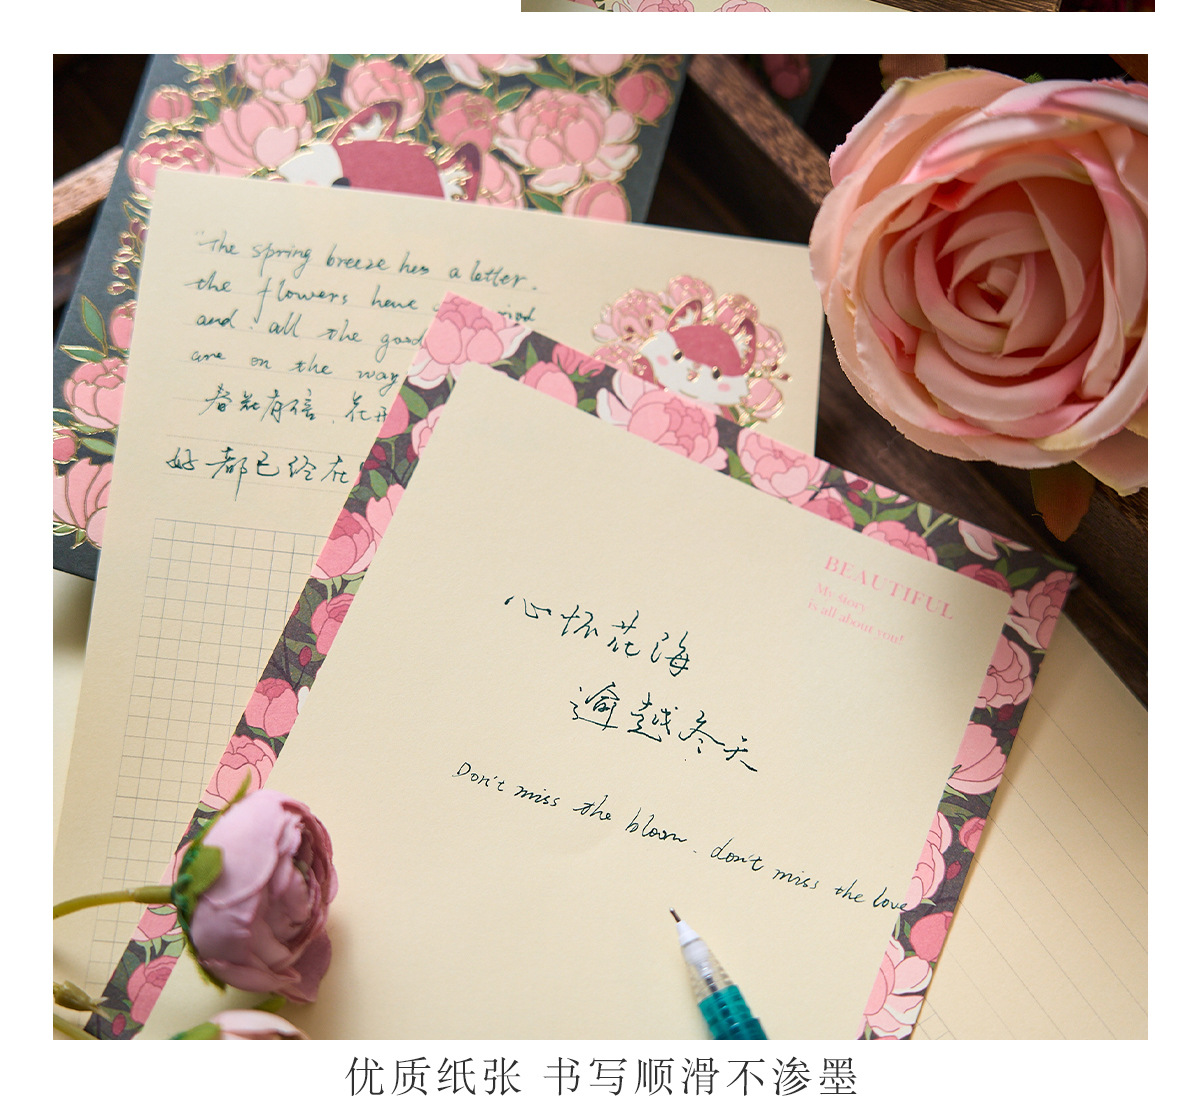 "The spring breeze has a letter.
the flowers have
and all the good
are on the way
春花有信.花开
好都已经在
BEAUTIFUL
My story
is all about you!
心怀花海
逾越冬天
Don't miss the bloom. don't miss the love
优质纸张 书写顺滑不渗墨